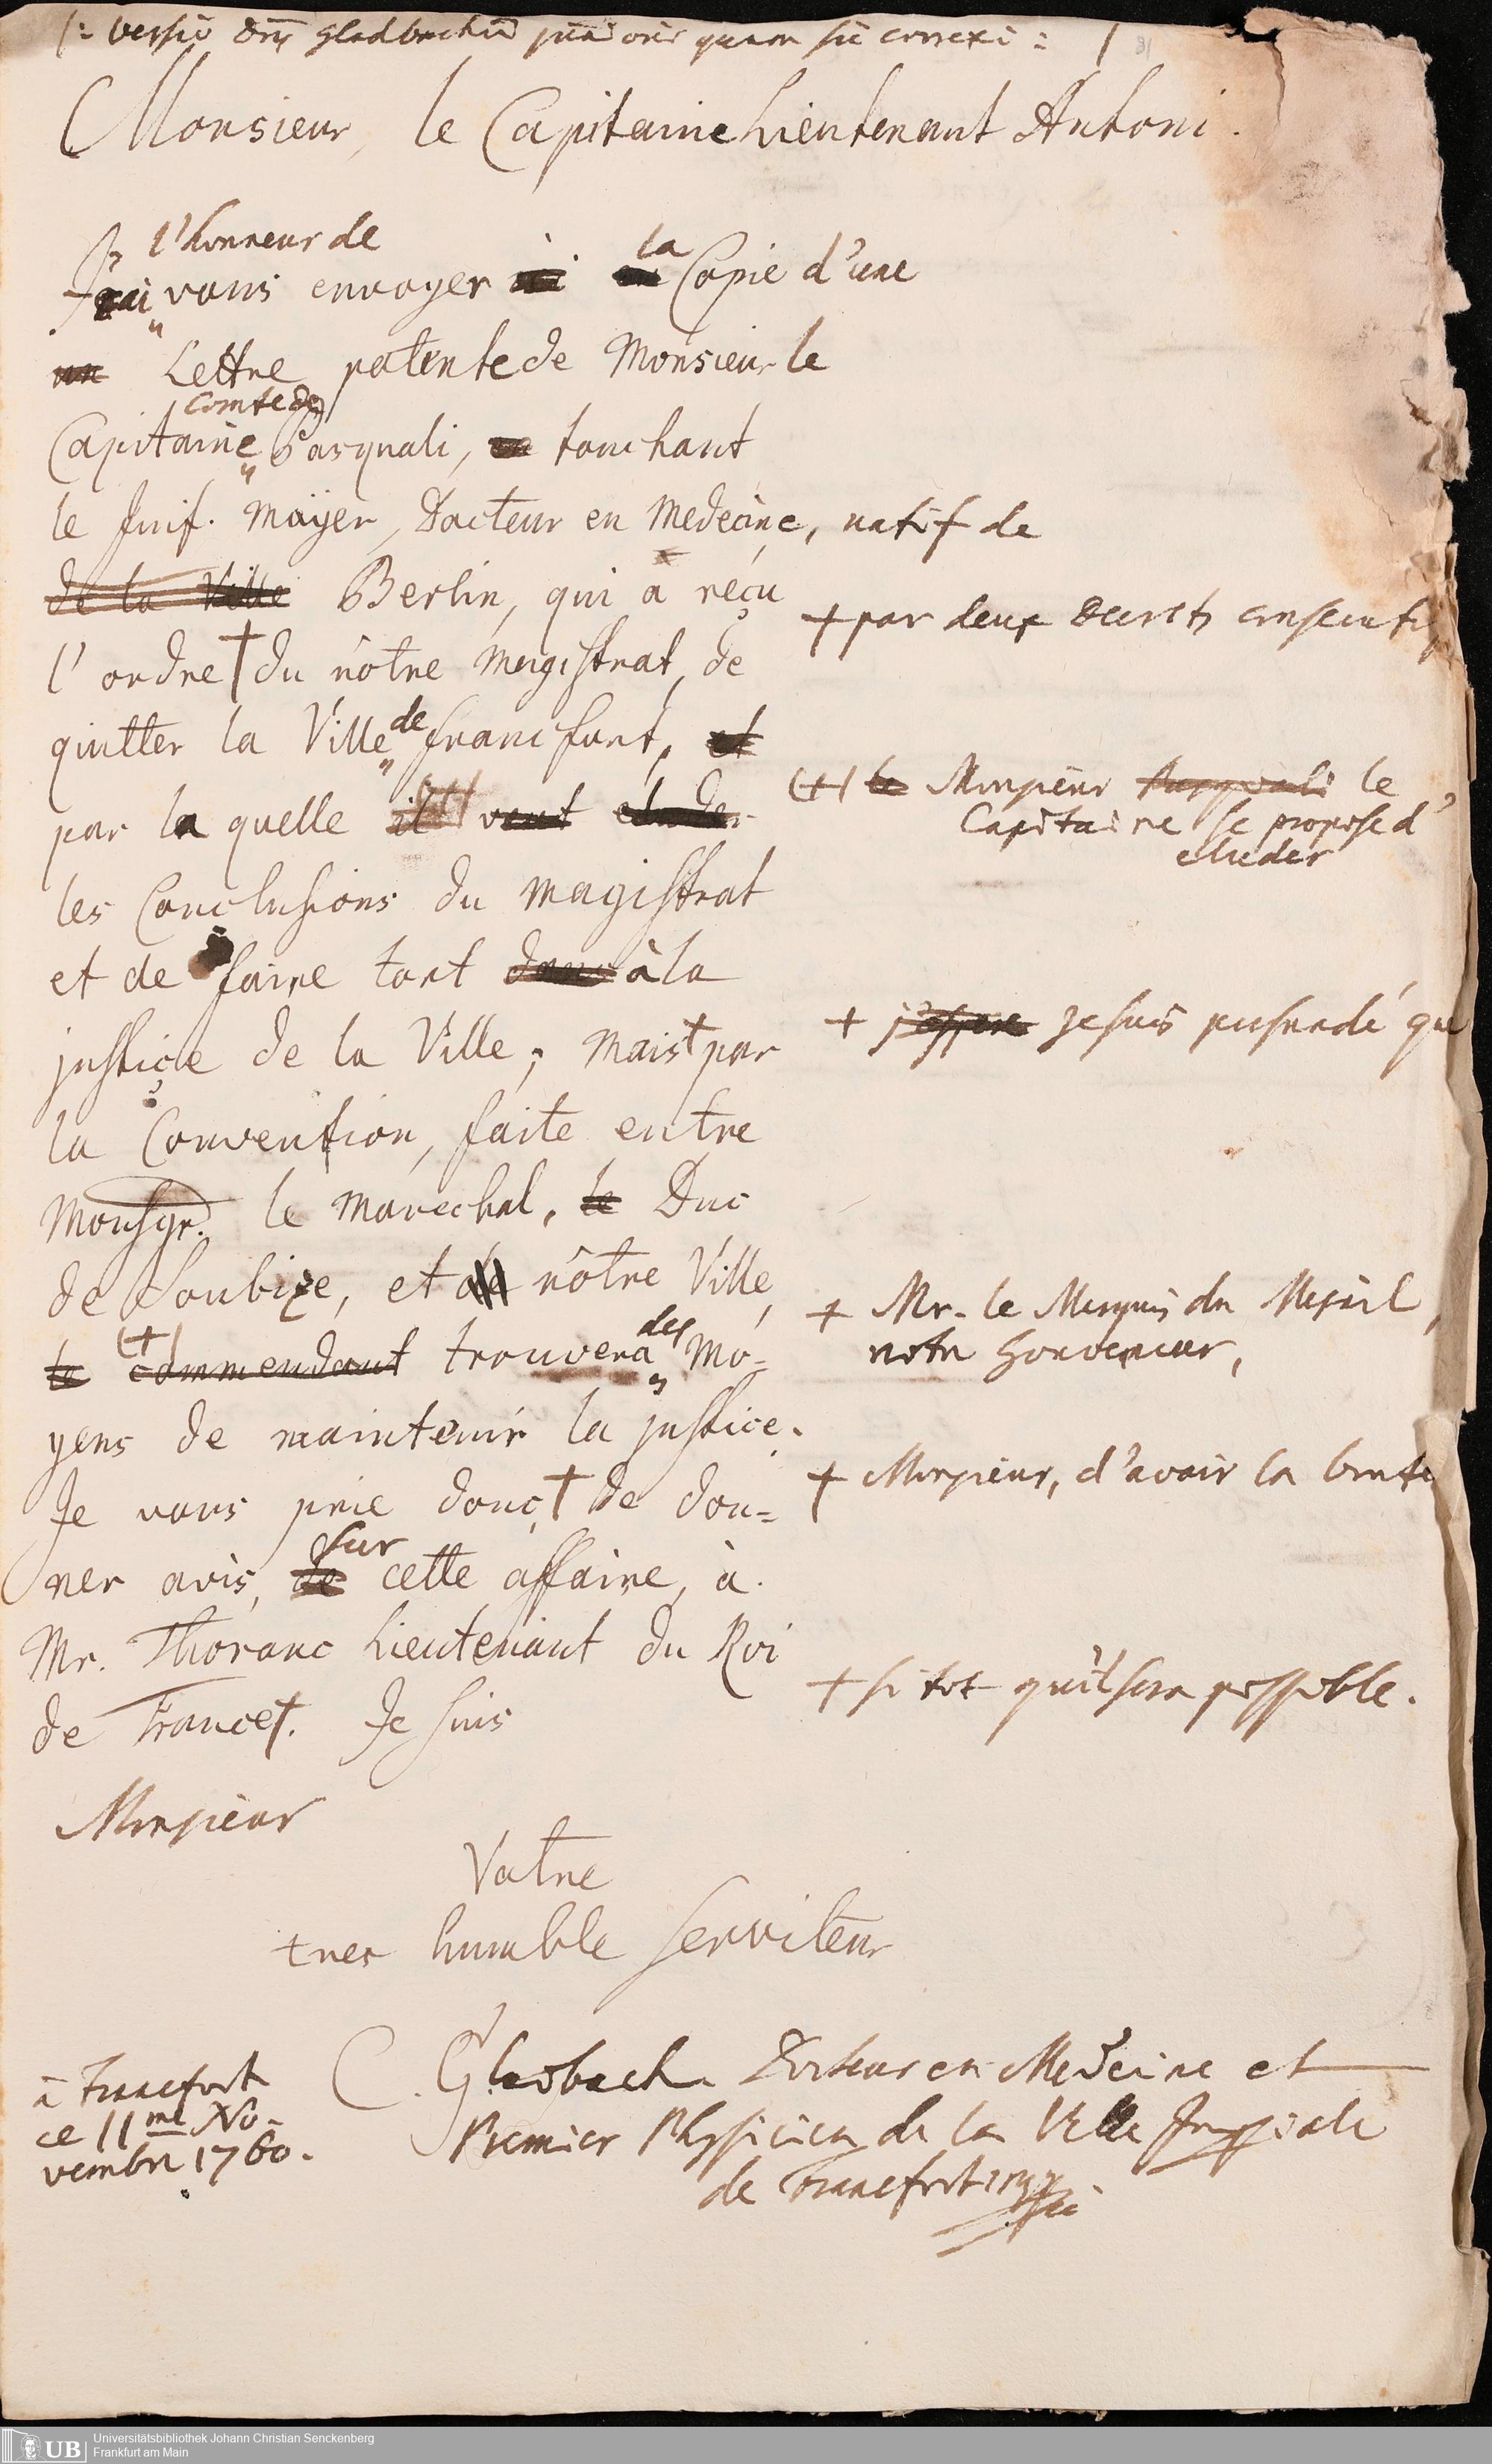 (: versio Dni Gladbachii junioris quam sic correxi : /
Monsieur, le Capitaine Lieutenant Antoni.
l'honneur de
J'ai vous envoyer la Copie d'une
un Lettre patente de Monsieur le
comte de
Capitaine Pasquali, touchant
le Juif. Mayer, Docteur en Medecine, natif de
de la Ville Berlin, qui a reçu
+ par deux Decrets consecutifs
l'ordre † du nôtre Magistrat, de
quitter la Ville de francfort, et
par la quelle il veut eluder
(+) le Monsieur Pasquali le
Capitaine se propose d'
eluder
les Conclusions du Magistrat
et de faire tort dans à la
+ j'espere je suis persuadé que
justice de la Ville; mais † par
la Convention, faite entre
Monsgr. le Marechal, le Duc
de Soubize, et nôtre Ville,
+ Mr. le Marquis du Mesnil,
notre Gouverneur,
(+)
le commendant trouvera des Mo=
yens de maintenir la justice.
+ Monsieur, d'avoir la bonté
Je vous prie donc, † de don=
ner avis, de sur cette affaire, à
Mr. Thoranc Lieutenant du Roi
+ si tot qu'il sera possible.
de France†. Je suis
Monsieur
Votre
tres humble serviteur
C. Gladbach Docteur en Medecine et
Premier Physicien de la Ville Imperiale
de Francfort
à Francfort
ce 11me No-
vembre 1760.
UB Universitätsbibliothek Johann Christian Senckenberg
Frankfurt am Main